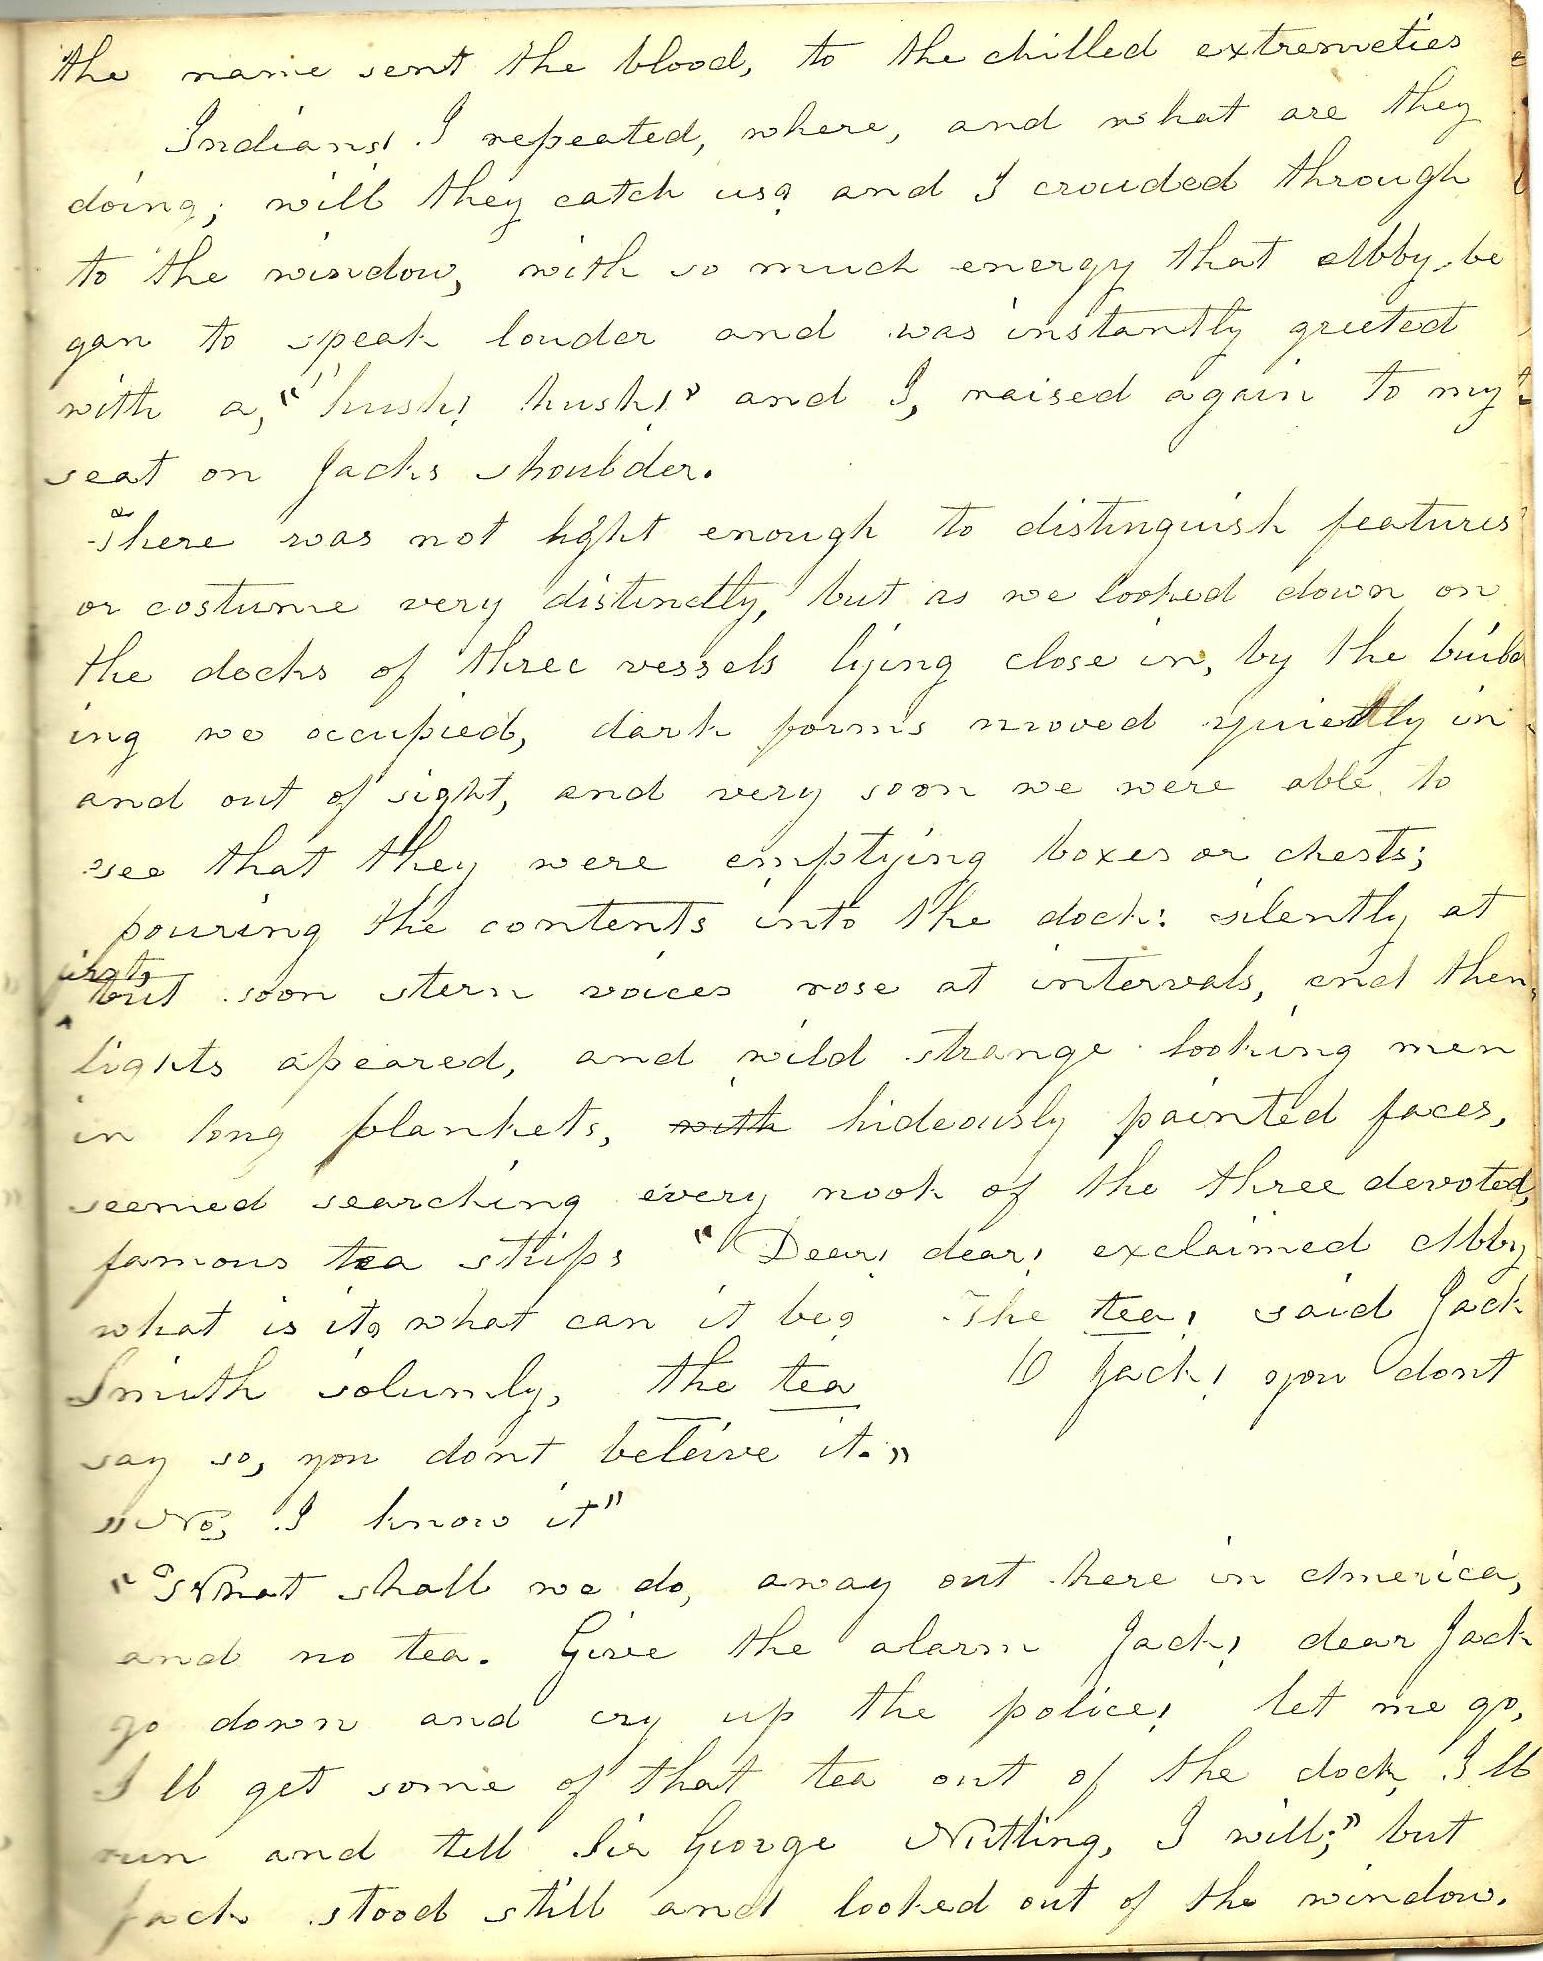 the name sent the blood, to the chilled extremeties
Indians! I repeated, where, and what are they
doing; will they catch us? and I crouded through
to the window, with so much energy that Abby be
gan to speak louder and was instantly greeted
with a, "hush! hush!" and I, raised again to my
seat on Jacks shoulder.
There was not light enough to distinguish features
or costume very distinctly, but as we looked down on
the decks of three vessels lying close in, by the build
ing we occupied, dark forms moved quietly in
and out of sight, and very soon we were able to
see that they were emptying boxes or chests;
pouring the contents into the dock: silently at
first,
but soon stern voices rose at intervals, and then,
lights apeared, and wild strange looking men
in long blankets, with hideously painted faces,
seemed searching every nook of the three devoted,
famous tea ships "Dear! dear! exclaimed Abby
what is it? what can it be? The tea! said Jack
Smith solumly, the tea O Jack! you dont
say so, you dont beleive it."
"No, I know it"
"What shall we do, away out here in America,
and no tea. Give the alarm Jack! dear Jack
go down and cry up the police! let me go,
I ll get some of that tea out of the dock, I ll
run and tell Sir George Nutting, I will;" but
Jack stood still and looked out of the window.